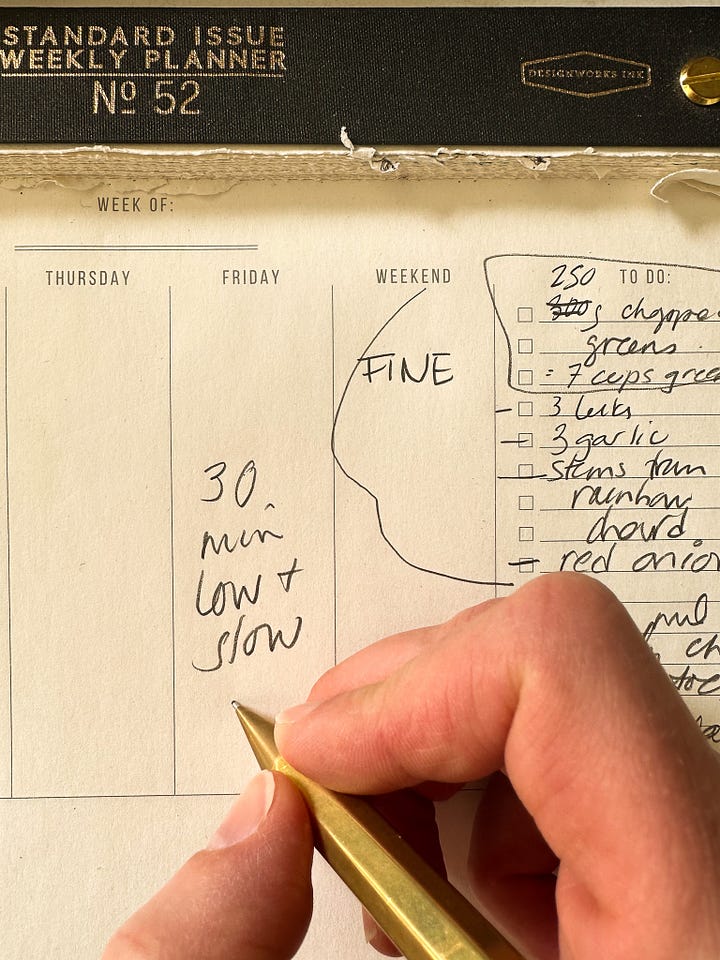 STANDARD ISSUE
WEEKLY PLANNER
Nº 52
DESIGNWORKS INK
WEEK OF:
THURSDAY
FRIDAY
30
min
low +
slow
WEEKEND
FINE
250 TO DO:
300 g
greens
= 7 cups gree
3 leeks
3 garlic
stems from
rainbow
chard
red onion
ch